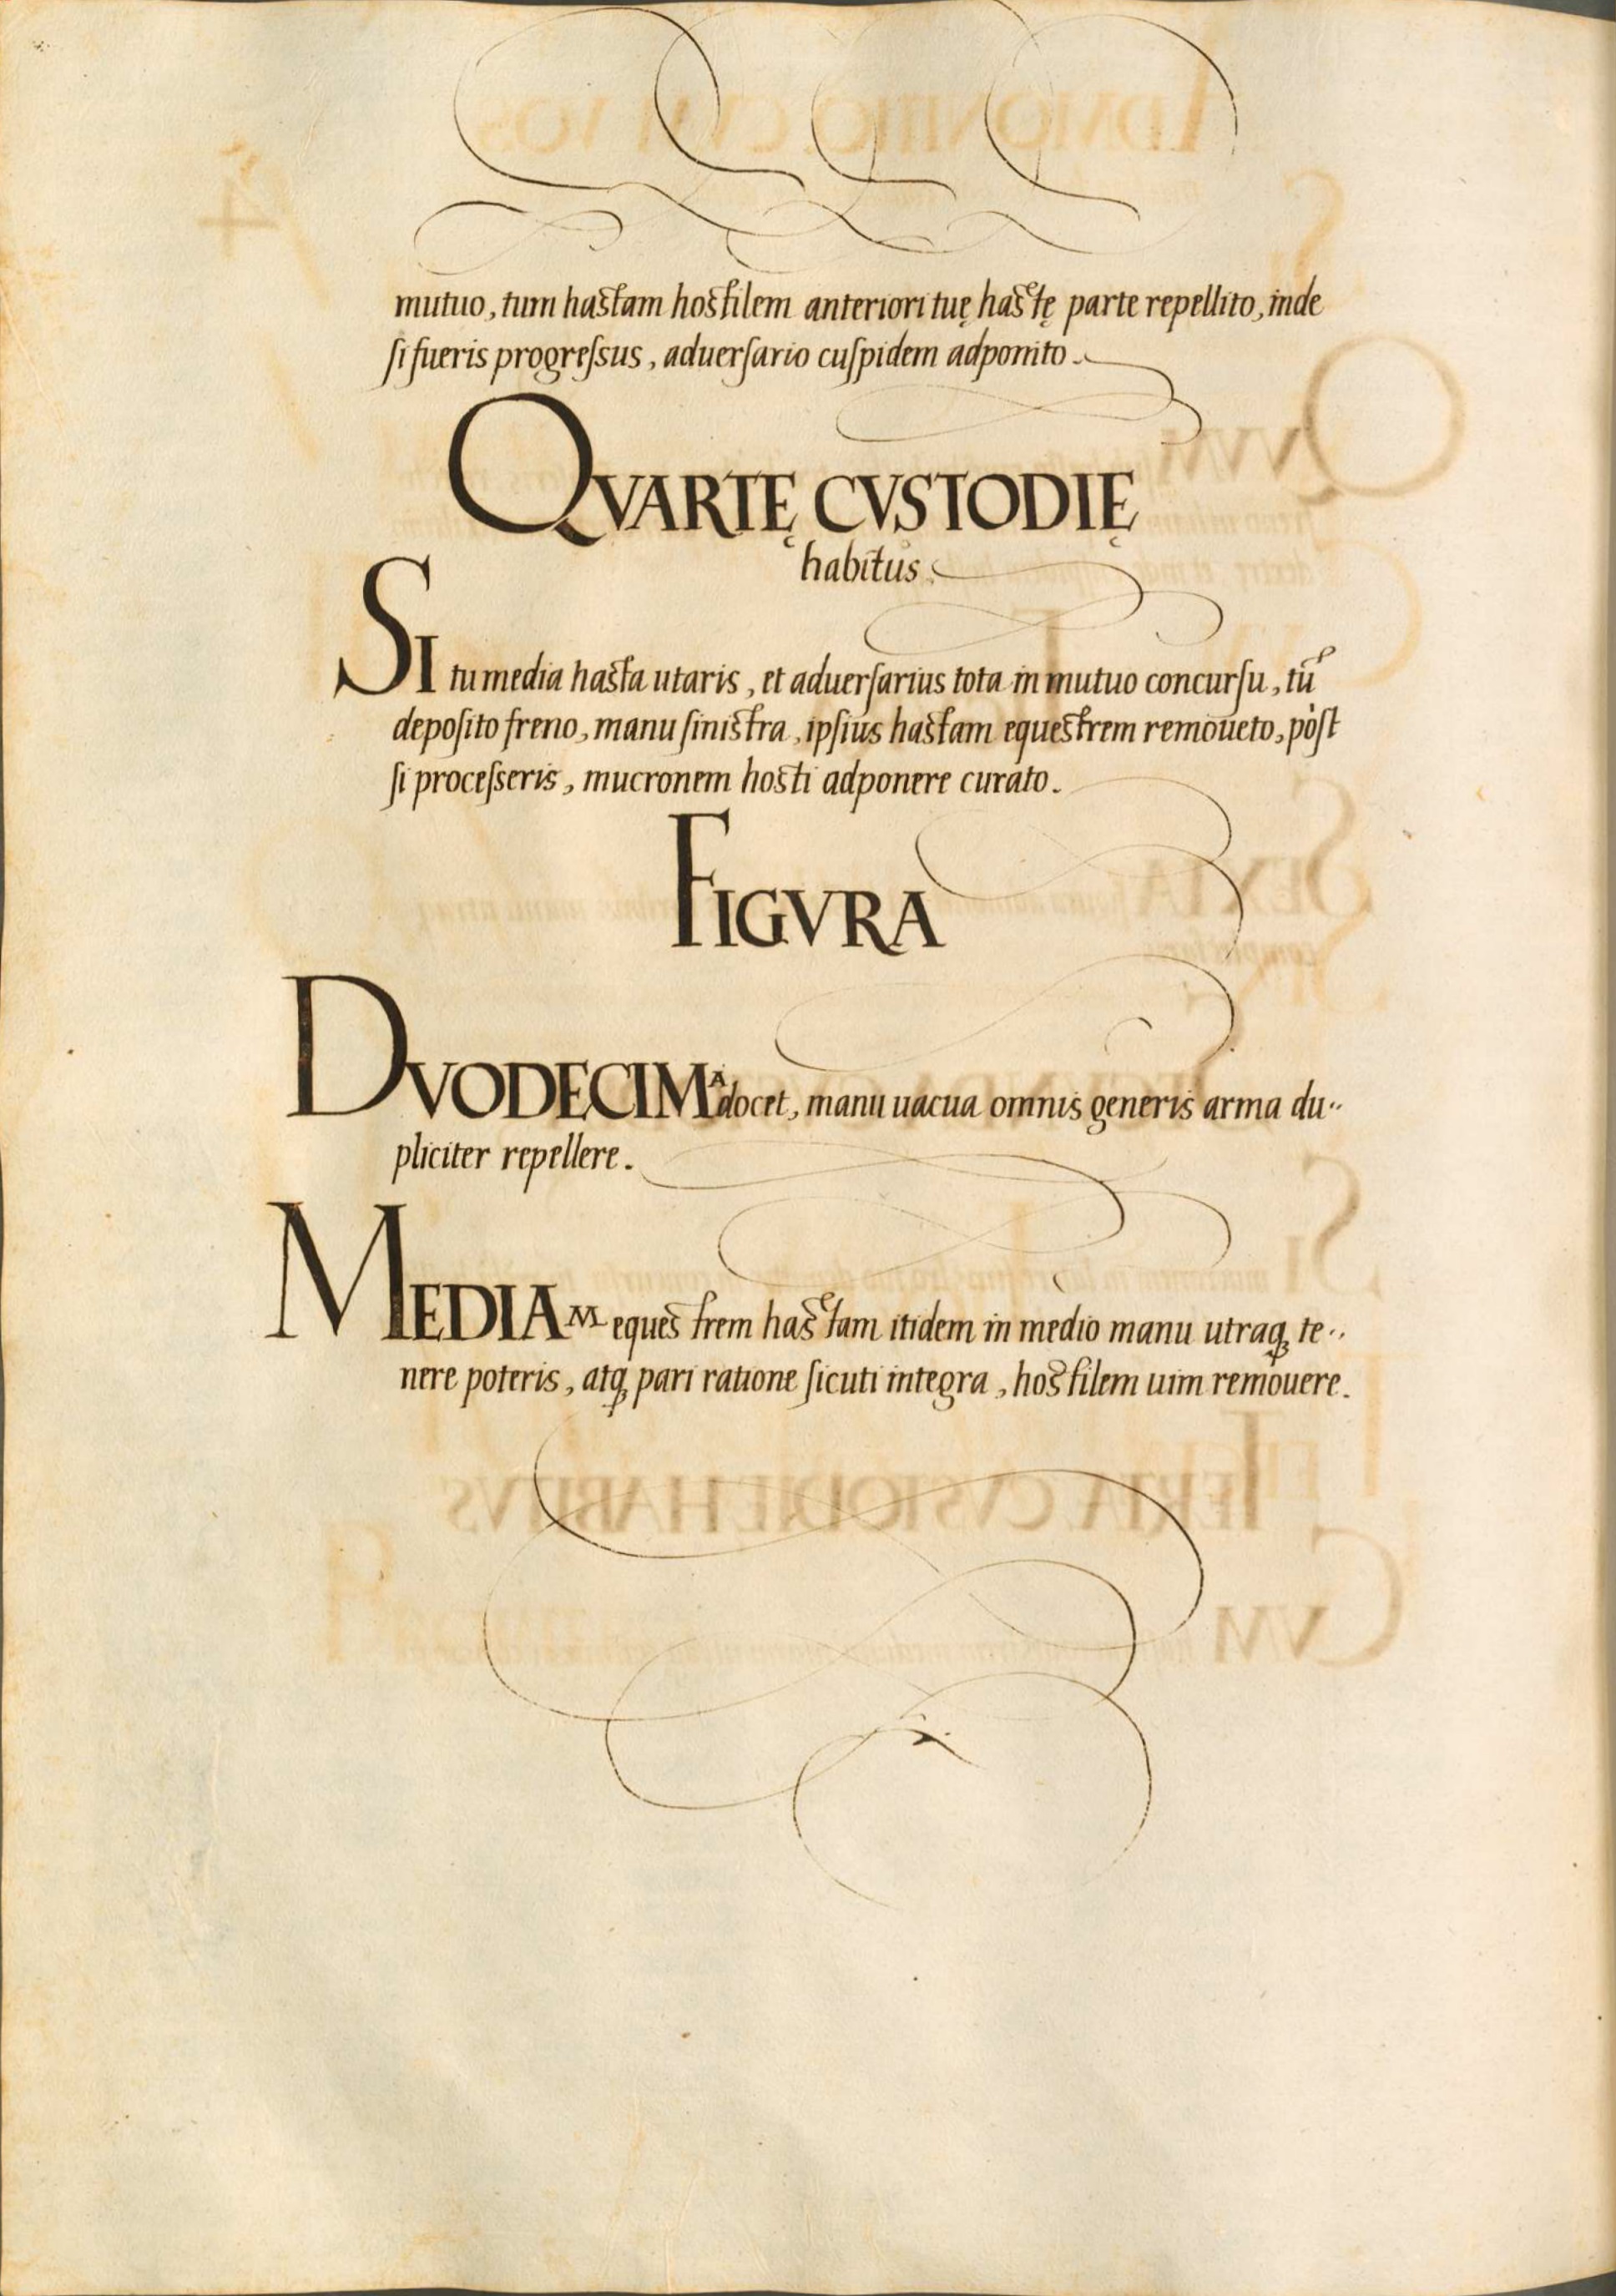 mutuo, tum hastam hostilem anteriori tuę hastę parte repellito, inde
si fueris progressus, aduersario cuspidem adponito.
QVARTĘ CVSTODIĘ
habitus.
SI tu media hasta utaris, et aduersarius tota in mutuo concursu, tũ
deposito freno, manu sinistra, ipsius hastam equestrem remoueto, pòst
si processeris, mucronem hosti adponere curato.
FIGVRA
DVODECIMA docet, manu uacua omnis generis arma du..
pliciter repellere.
MEDIAM equestrem hastam itidem in medio manu utraqꝫ te..
nere poteris, atqꝫ pari ratione sicuti integra, hostilem uim remouere.